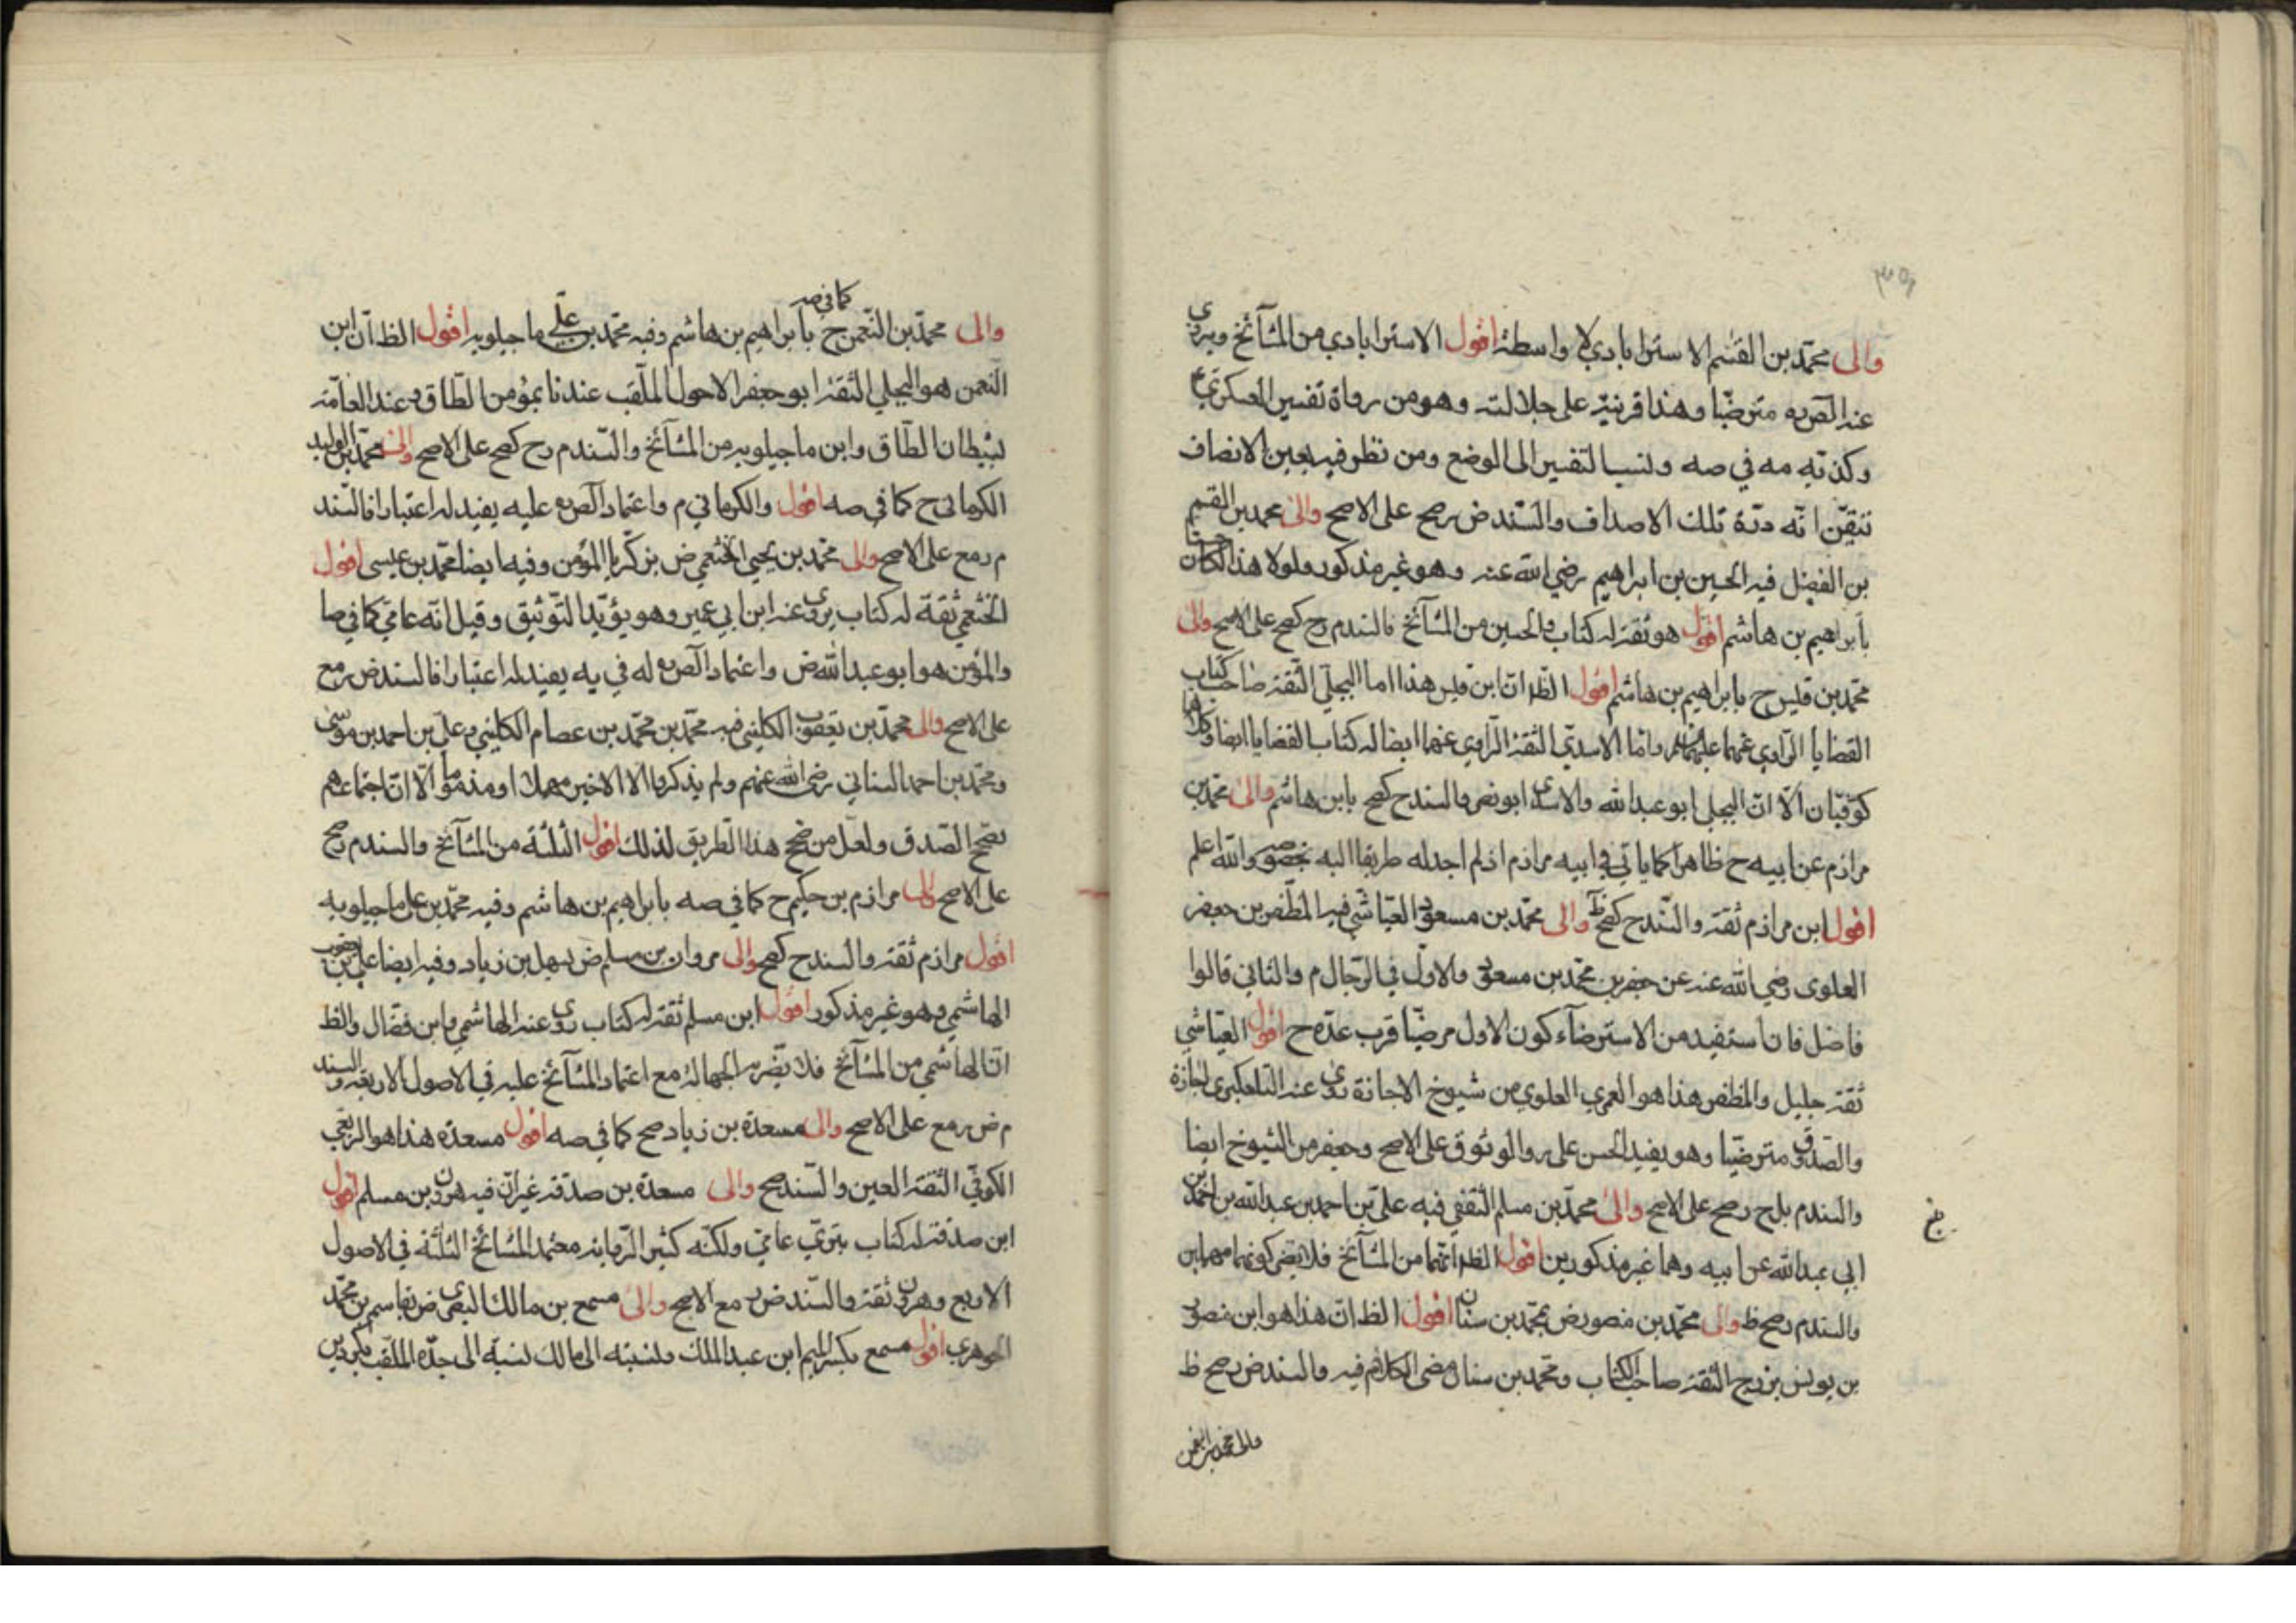 والى محمّد بن القسم الاسترابادي لا واسطة اقول الاسترابادي من المشآئخ ويروي
عنه الصّ ره مترضّيا وهذا قرينة على جلالته وهو من رواة تفسير العسكري ع
وكذّبه مه في صه ونسب التفسير الى الوضع ومن نظر فيه بعين الانصاف
تيقّن انّه درّة تلك الاصداف والسّند ض رصح على الاصح والى محمد بن القسم
بن الفضيل فيه الحسين بن ابراهيم رضي الله عنه وهو غير مذكور ولولا هذا لكان حسنا
بابراهيم بن هاشم اقول هو ثقة له كتاب والحسين من المشآئخ فالسند م رح كصح على الاصح والى
محمّد بن قيس ح بابراهيم بن هاشم اقول الظ انّ ابن قيس هذا اما البجلّي الثّقة صاحب كتاب
القضايا الرّاوي عنهما عليهما السلام وامّا الاسديّ الثقة الرّاوي عنهما ايضا له كتاب القضايا ايضا وكلاهما
كوفيّان الّا انّ البجلي ابو عبد الله والاسدي ابو نصر والسند ح كصح بابن هاشم والى محمّد بن
مرازم عن ابيه ح ظاهرا كما ياتي في ابيه مرازم اذ لم اجد له طريقا اليه بخصوصه والله اعلم
اقول ابن مرازم ثقة والسّند ح كصح ظ والى محمّد بن مسعود العيّاشي فيه المظّفر بن جعفر
العلوى رضي الله عنه عن جعفر بن محمّد بن مسعود والاوّل في الرّجال م والثاني قالوا
فاضل فان استفيد من الاسترضآء كون الاول مرضيّا قرب عدّه ح اقول العيّاشي
ثقة جليل والمظفر هذا هو العمري العلوي من شيوخ الاجازة روى عنه التلعكبري اجازة
والصّدوق مترضّيا وهو يفيد الحسن عليه والوثوق على الاصح وجعفر من الشيوخ ايضا
والسند م بل ح رصح على الاصح والى محمّد بن مسلم الثقفي فيه علىّ بن احمد بن عبد الله بن احمد بن
ابي عبد الله عن ابيه وهما غير مذكورين اقول الظ انّهما من المشآئخ فلا يضر كونهما مهملين
والسند م رصح ظ والى محمّد بن منصور ض بمحمّد بن سنان اقول الظ انّ هذا هو ابن منصور
بن يونس بزرج الثقة صاحب الكتاب ومحمّد بن سنان مضى الكلام فيه والسند ض رصح ظ
والى محمد بن النعمن
والى محمّد بن النّعمن ح كما في صه بابراهيم بن هاشم وفيه محمّد بن علي ماجيلويه اقول الظ انّ ابن
النعمن هو البجلي الثّقة ابو جعفر الاحول الملّقب عندنا بمؤمن الطّاق وعند العامّة
بشيطان الطّاق وابن ماجيلويه من المشآئخ والسّند م رح كصح على الاصح والى محمّد بن الوليد
الكرمانى ح كما في صه اقول والكرماني م واعتماد الصّ ره عليه يفيد له اعتبارا فالسّند
م رمع على الاصح والى محمّد بن يحيى الخثعمي ض بزكريا المؤمن وفيه ايضا محمّد بن عيسى اقول
الخثعمي ثقة له كتاب يروى عنه ابن ابي عمير وهو يؤيّد التّوثيق وقيل انّه عامّي كما في صا
والمؤمن هو ابو عبد الله ض واعتماد الصّ ره له في يه يفيد له اعتبارا فالسند ض رمع
على الاصح والى محمّد بن يعقوب الكليني فيه محمّد بن محمّد بن عصام الكليني وعليّ بن احمد بن موسى
ومحمّد بن احمد السناني رضي الله عنهم ولم يذكروا الا الاخير مهملا او مذموما الّا انّ اجتماعهم
يفتح الصّدق ولعلّ من صحّح هذا الطّريق لذلك اقول الثلثة من المشآئخ والسند م رصح
على الاصح والى مرازم بن حكيم ح كما في صه بابراهيم بن هاشم وفيه محمّد بن على ماجيلويه
اقول مرازم ثقة والسند ح كصح والى مروان بن مسلم ض بسهل بن زياد وفيه ايضا علي بن يعقوب
الهاشمي وهو غير مذكور اقول ابن مسلم ثقة له كتاب روى عنه الهاشمي وابن فضّال والظ
انّ الهاشمي من المشآئخ فلا يضّره الجهالة مع اعتماد المشآئخ عليه في الاصول الاربعة والسند
م ض رمع على الاصح والى مسعدة بن زياد صح كما في صه اقول مسعدة هذا هو الرّبعي
الكوفيّ الثقة العين والسّند صح والى مسعدة بن صدقة غير انّ فيه هرون بن مسلم اقول
ابن صدقة له كتاب بتريّ عامّي ولكنّه كثير الرّواية معتمد المشائخ الثلثة في الاصول
الاربع وهرون ثقة والسّند ض رمع الاصح والى مسمع بن مالك البصرى ض بقاسم بن محمّد
الجوهري اقول مسمع بكسر الميم ابن عبد الملك ونسبته الى مالك نسبة الى جدّه الملقّب بكردين